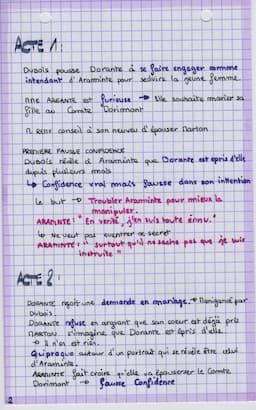 ACTE 1 :
Dubois pousse Dorante à se faire engager comme
intendant d'Araminte pour séduire la jeune femme.
Mme ARGANTE est furieuse → Elle souhaite marier sa
fille au Comte Dorimont
M. REMY conseil à son neveu d'épouser Marton
PREMIERE FAUSSE CONFIDENCE
DUBOIS révèle à Araminte que Dorante est épris d'elle
depuis plusieurs mois
↳ Confidence vrai mais fausse dans son intention
le but → Troubler Araminte pour mieux la
manipuler.
ARAMINTE : "En vérité, j'en suis toute émue."
↳ Ne veut pas éventrer ce secret
ARAMINTE : "surtout qu'il ne sache pas que je suis
instruite"
ACTE 2 :
DORANTE reçoit une demande en mariage. → Manigancé par
Dubois.
DORANTE refuse en arguant que son coeur est déjà pris
MARTON s'imagine que Dorante est épris d'elle.
↳ Il n'en est rien.
Quiproquo autour d'un portrait qui se révèle être celui
d'Araminte.
ARAMINTE fait croire qu'elle va épouser le Comte
Dorimont → fausse Confidence